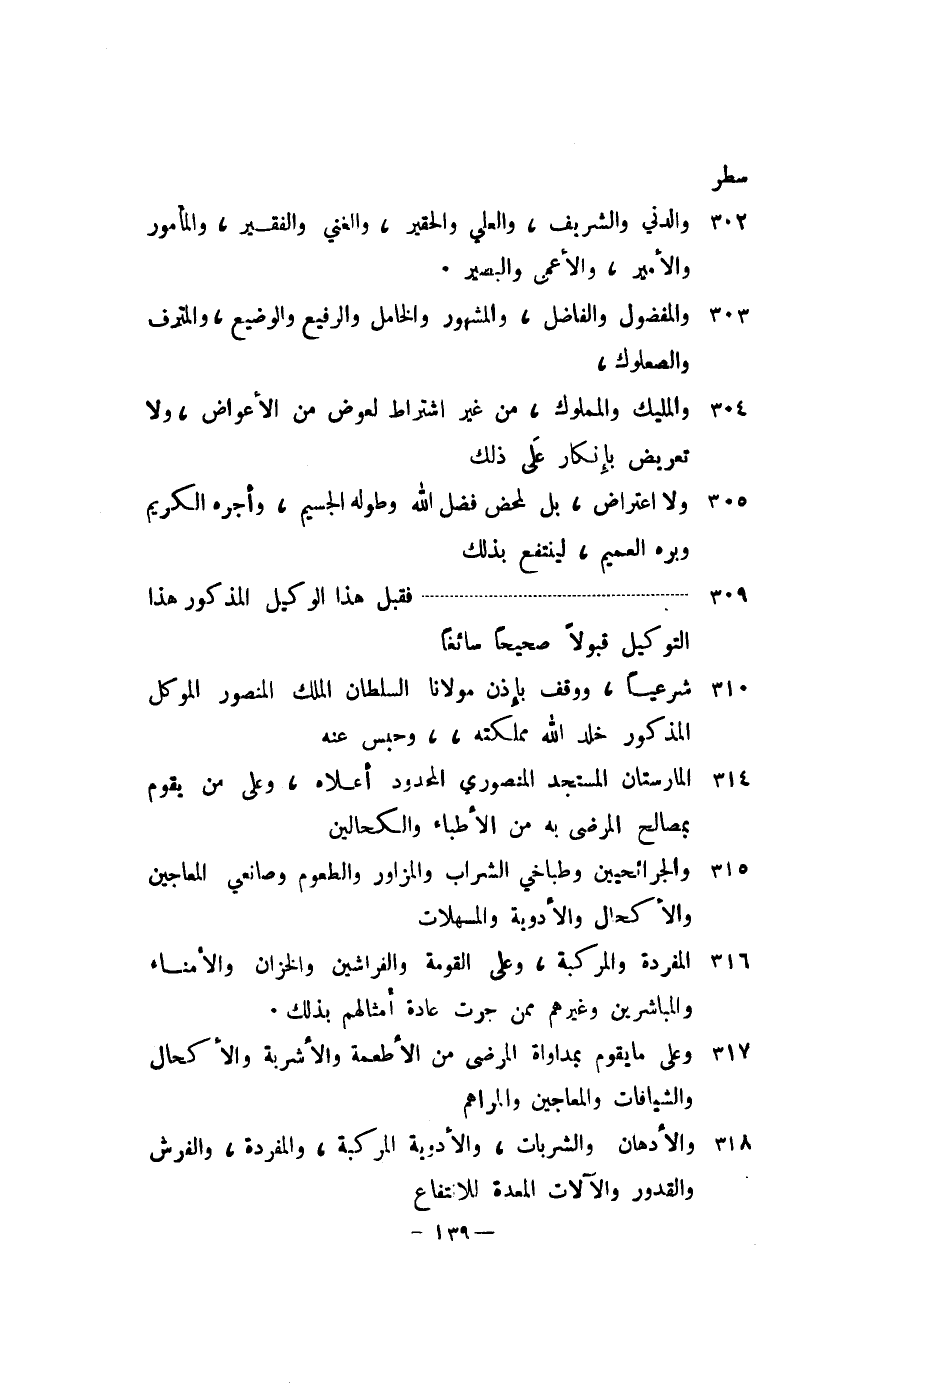 سطر
٣٠٢ والدني والشريف ، والعلي والحقير ، والغني والفقـير ، والمأمور
والأمير ، والأعمى والبصير ٠
٣٠٣ والمفضول والفاضل ، والمشهور والخامل والرفيع والوضيع ، والمترف
والصعلوك ،
٣٠٤ والمليك والمملوك ، من غير اشتراط لعوض من الأعواض ، ولا
تعريض بإنكار عَلَى ذلك
٣٠٥ ولا اعتراض ، بل لمحض فضل الله وطوله الجسيم ، وأجره الكريم
وبره العميم ، لينتفع بذلك
٣٠٩ ........................ فقبل هذا الوكيل المذكور هذا
التوكيل قبولاً صحيحاً سائغاً
٣١٠ شرعيـاً ، ووقف بإذن مولانا السلطان الملك المنصور الموكل
المذكور خلد الله مملكته ، ، وحبس عنه
٣١٤ المارستان المستجد المنصوري المحدود أعـلاه ، وعلى من يقوم
بمصالح المرضى به من الأطباء والكحالين
٣١٥ والجرائحيين وطباخي الشراب والمزاور والطعوم وصانعي المعاجين
والأكحال والأدوية والمسهلات
٣١٦ المفردة والمركبة ، وعلى القومة والفراشين والخزان والأمنـاء
والمباشرين وغيرهم ممن جرت عادة أمثالهم بذلك ٠
٣١٧ وعلى مايقوم بمداواة المرضى من الأطعمة والأشربة والأكحال
والشيافات والمعاجين والمراهم
٣١٨ والأدهان والشربات ، والأدوية المركبة ، والمفردة ، والفرش
والقدور والآلات المعدة للانتفاع
— ١٣٩ -